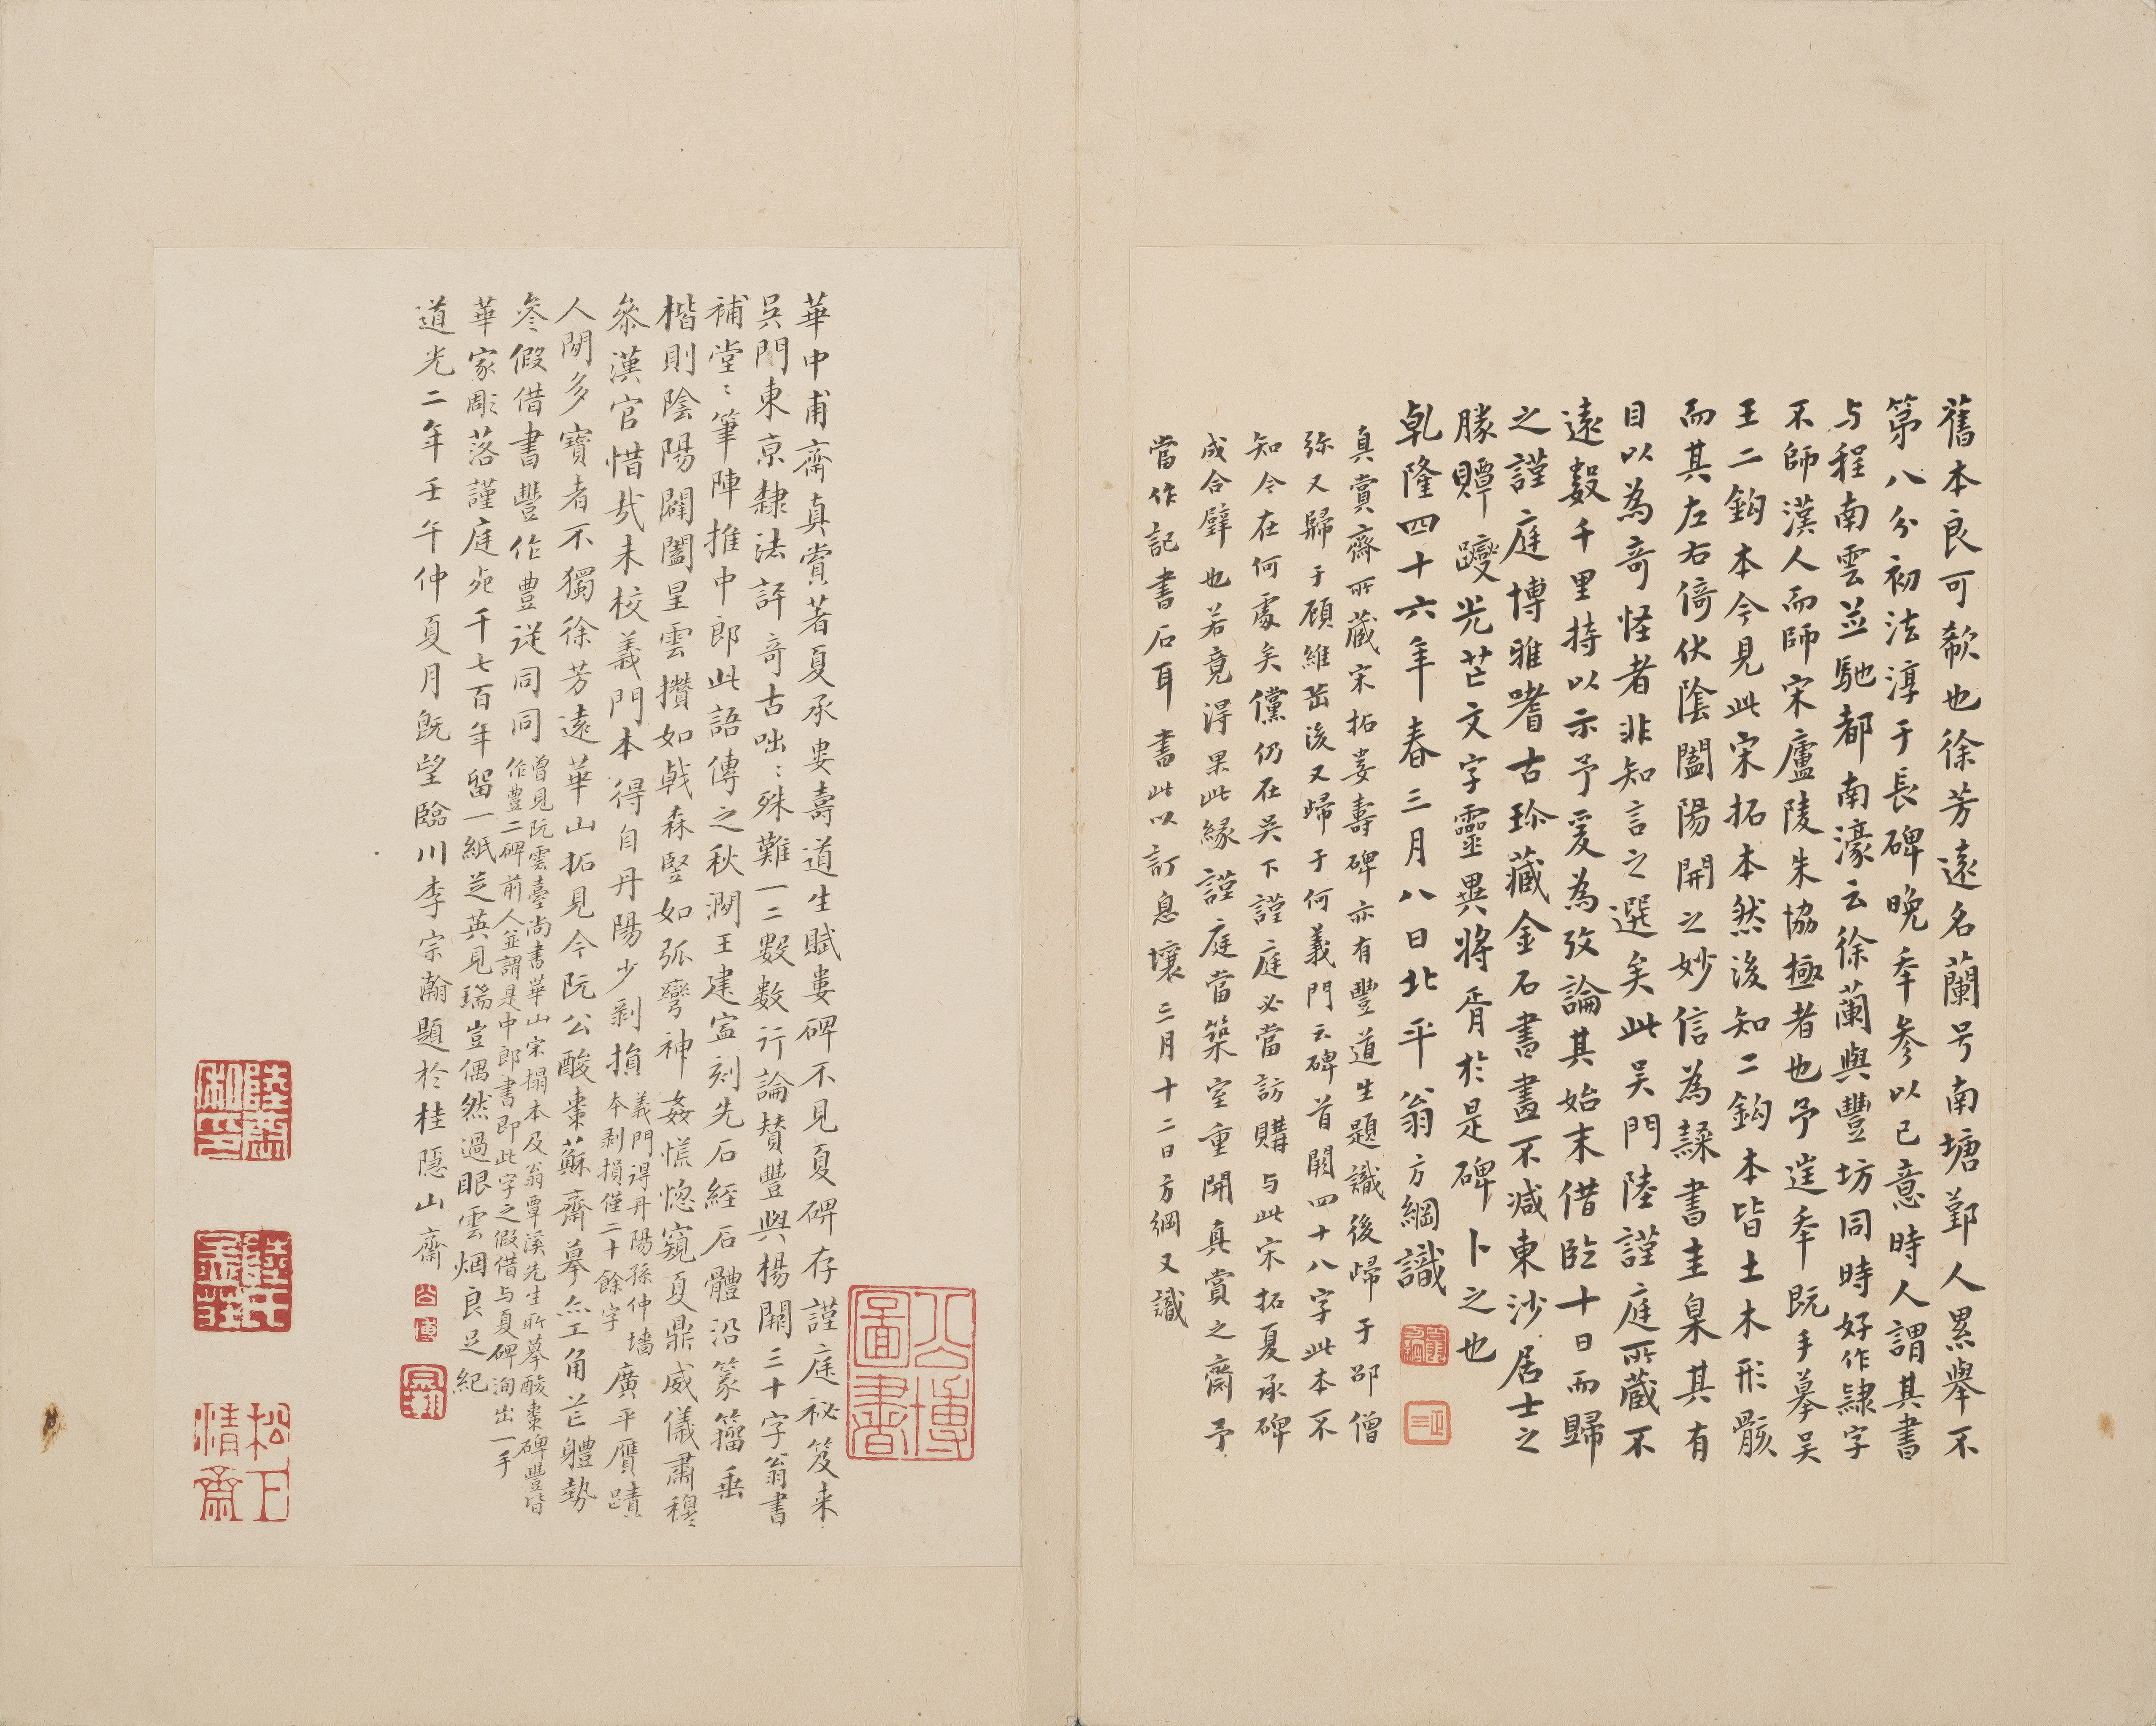 舊本良可欷也徐芳遠名蘭号南塘鄞人累舉不
第八分初法淳于長碑晚年参以己意時人謂其書
与程南雲並馳都南濠云徐蘭與豐坊同時好作隸字
不師漢人而師宋廬陵朱協極者也予逞年既手摹吴
王二鈎本今見此宋拓本然後知二鈎本皆土木形骸
而其左右倚伏陰闔陽開之妙信為諜書圭臬其有
目以為奇怪者非知言之選矣此吴門陸謹庭所藏不
遠數千里持以示予爰為攷論其始末借臨十日而歸
之謹庭博雅嗜古珎藏金石書畫不減東沙居士之
賸贉躞光芒文字靈異將胥於是碑卜之也
乹隆四十六年春三月八日北平翁方綱識
真賞齋所藏宋拓婁壽碑亦有豐道生題識後歸于邵僧
弥又歸于顧維嵒後又歸于何義門云碑首闕四十八字此本不
知今在何處矣儻仍在吴下謹庭必當訪購与此宋拓夏承碑
成合璧也若竟得果此緣謹庭當築室重開真賞之齋予
當作記書石耳書此以訂息壤三月十二日方綱又識
華中甫齋真賞著夏承婁壽道生賦婁碑不見夏碑存謹庭祕笈来
吴門東京隸法評奇古咄〻殊難一二數数行論賛豐與楊闕三十字翁書
補堂〻筆陣推中郎此語傳之秋澗王建寍刻先石經石體沿篆籀垂
楷則陰陽闢闔星雲攅如戟森竪如弧彎神姦慌惚窺夏鼎威儀肅穆
叅漢官惜㦲未校義門本得自丹陽少剥損義門得丹陽孫仲墻本剥損僅二十餘字廣平贋蹟
人閒多寳者不獨徐芳遠華山拓見今阮公酸棗蘇齋摹亦工角芒體勢
叅假借書豐作豊從同同曾見阮雲臺尚書華山宋搨本及翁覃溪先生所摹酸棗碑豐皆作豊二碑前人並謂是中郎書即此字之假借与夏碑洵出一手
華家彫落謹庭㱾千七百年留一紙芝英見瑞豈偶然過眼雲烟良足紀
道光二年壬午仲夏月既望臨川李宗瀚題於桂隱山齋
公博
公博圖書
松下清齋